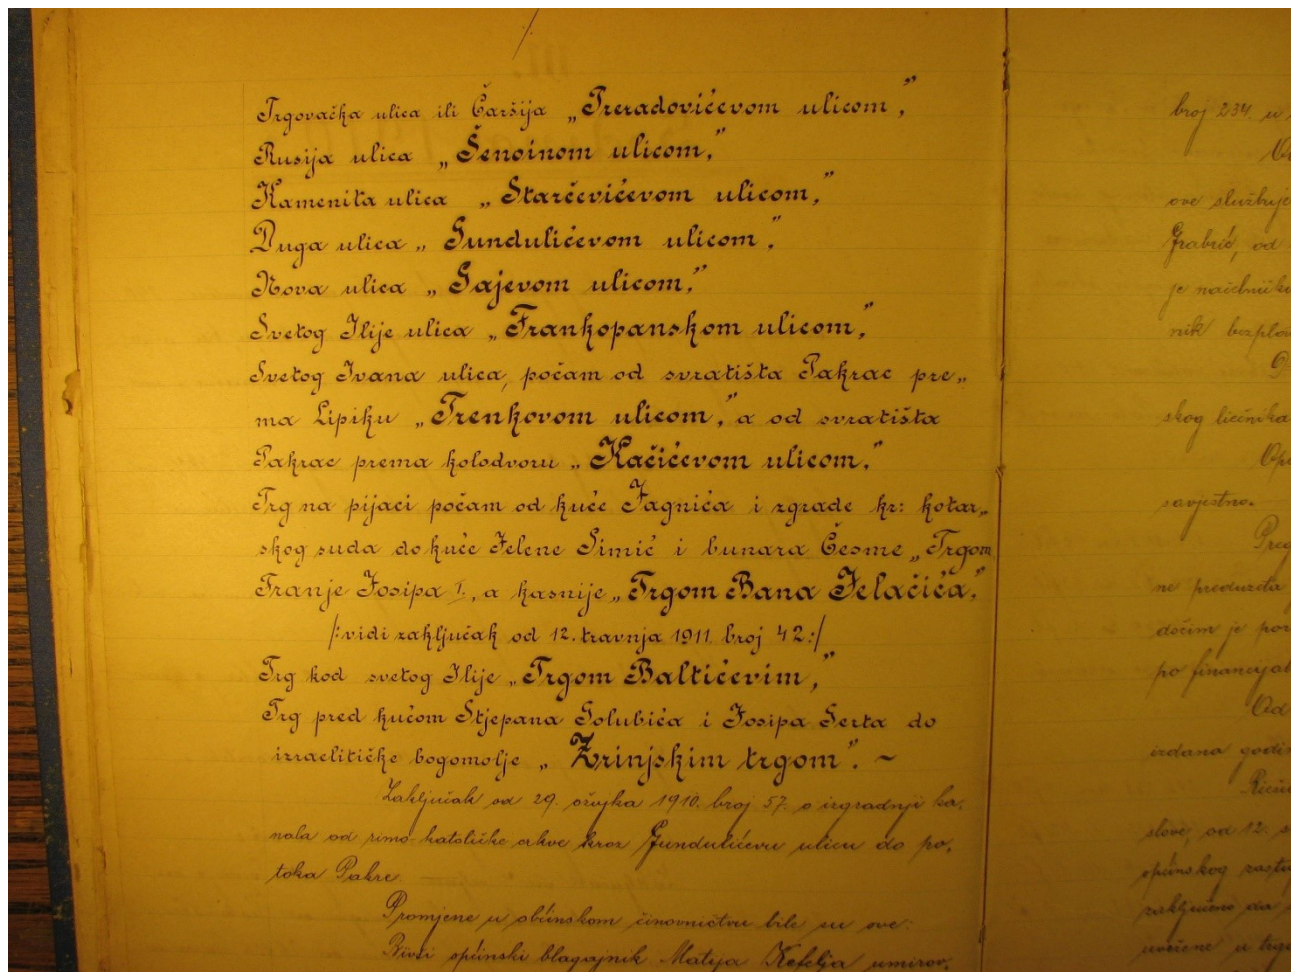 Trgovačka ulica ili Čaršija „Preradovićevom ulicom,”
Rusija ulica „Šenoinom ulicom,”
Kamenita ulica „Starčevićevom ulicom,”
Duga ulica „Gundulićevom ulicom,”
Nova ulica „Gajevom ulicom,”
Svetog Ilije ulica „Frankopanskom ulicom,”
Svetog Ivana ulica, počam od svratišta Pakrac pre„
ma Lipiku „Trenkovom ulicom,” a od svratišta
Pakrac prema kolodvoru „Kačićevom ulicom.”
Trg na pijaci počam od kuće Jagnića i zgrade kr: kotar„
skog suda do kuće Jelene Simić i bunara Česme „Trgom
Franje Josipa I., a kasnije „Trgom Bana Jelačića,”
/:vidi zaključak od 12. travnja 1911. broj 42:/
Trg kod svetog Ilije „Trgom Baltićevim,”
Trg pred kućom Stjepana Golubića i Josipa Serta do
izraelitičke bogomolje „Zrinjskim trgom”. ~
Zaključak od 29. ožujka 1910. broj 57. o izgradnji ka,
nala od rimo-katoličke crkve kroz Gundulićevu ulicu do po,
toka Pakre.
Promjene u obćinskom činovničtvu bile su ove:
Bivši općinski blagajnik Matija Kefelja umirov,
broj 234. u
ove službuje
Grabrić, od
je načelniku
nik bezplov
skog liečnika
savjestno.
ne preduzeta
dočim je por
po financijal
Od
izdana godi
slove, od 12. s
općinskog zastu
zaključeno da
uvežene u trgo